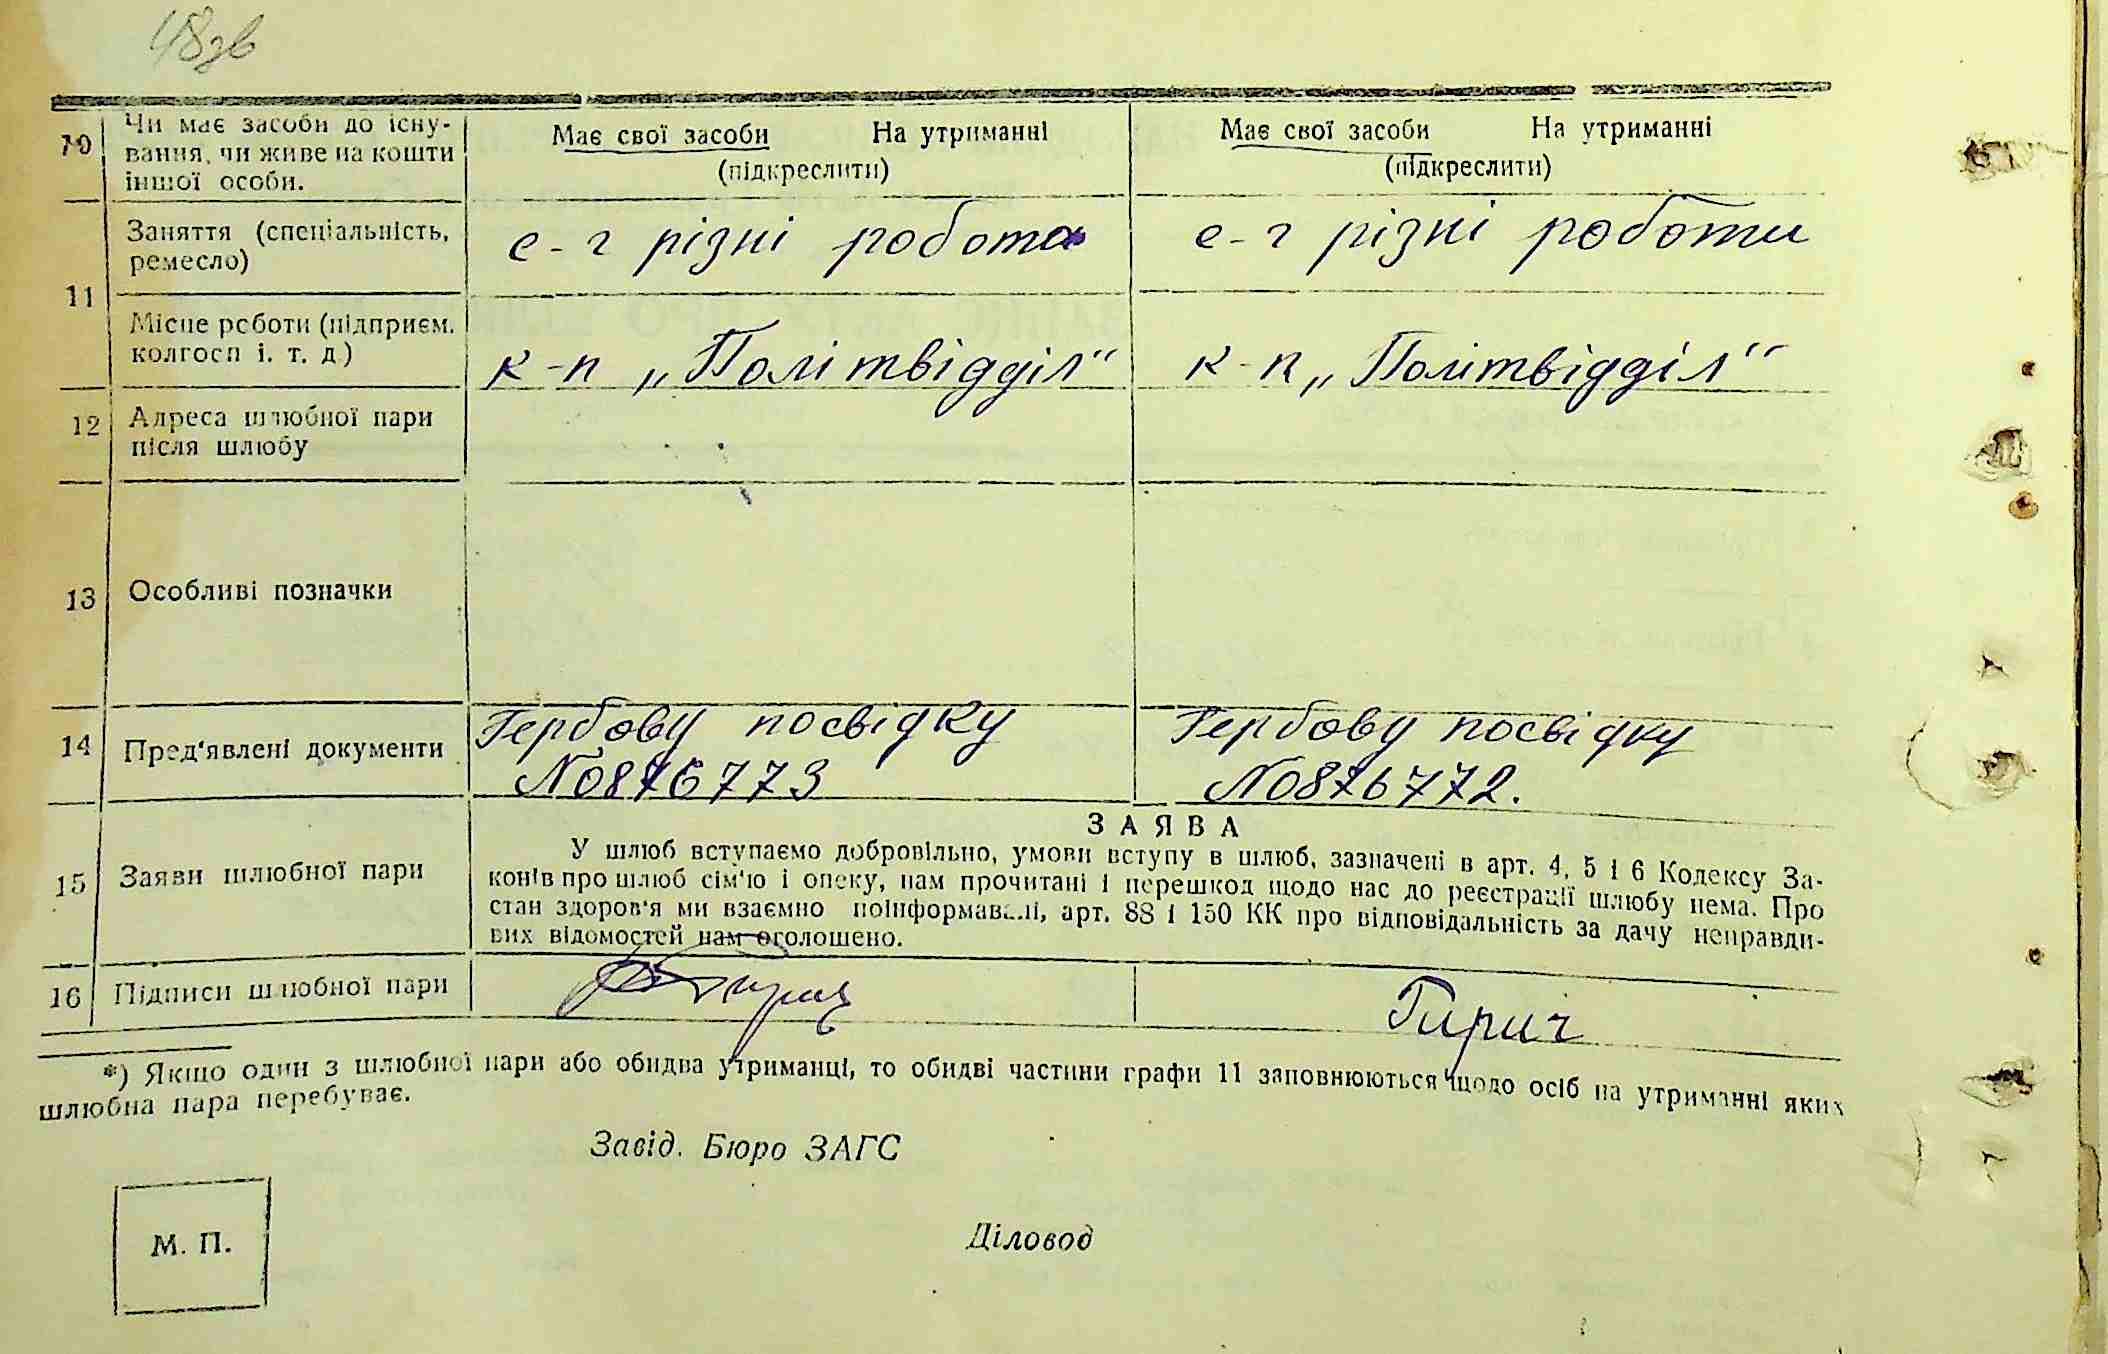 48зв
10 Чи має засоби до існу-
вання, чи живе на кошти
іншої особи.
Має свої засоби На утриманні
(підкреслити)
Має свої засоби На утриманні
(підкреслити)
11 Заняття (спеціальність,
ремесло)
с-г різні робота
с-г різні роботи
Місце роботи (підприєм.
колгосп і. т. д)
к-п „Політвідділ"
к-п „Політвідділ"
12 Адреса шлюбної пари
після шлюбу
13 Особливі позначки
14 Пред'явлені документи
Гербову посвідку
№0876773
Гербову посвідку
№0876772.
15 Заяви шлюбної пари
ЗАЯВА
У шлюб вступаємо добровільно, умови вступу в шлюб, зазначені в арт. 4, 5 і 6 Кодексу За-
конів про шлюб сім'ю і опеку, нам прочитані і перешкод щодо нас до реєстрації шлюбу нема. Про
стан здоров'я ми взаємно поінформавалі, арт. 88 і 150 КК про відповідальність за дачу неправди-
вих відомостей нам оголошено.
16 Підписи шлюбної пари
Гирич
*) Якщо один з шлюбної пари або обидва утриманці, то обидві частини графи 11 заповнюються щодо осіб на утриманні яких
шлюбна пара перебуває.
Завід. Бюро ЗАГС
М. П.
Діловод